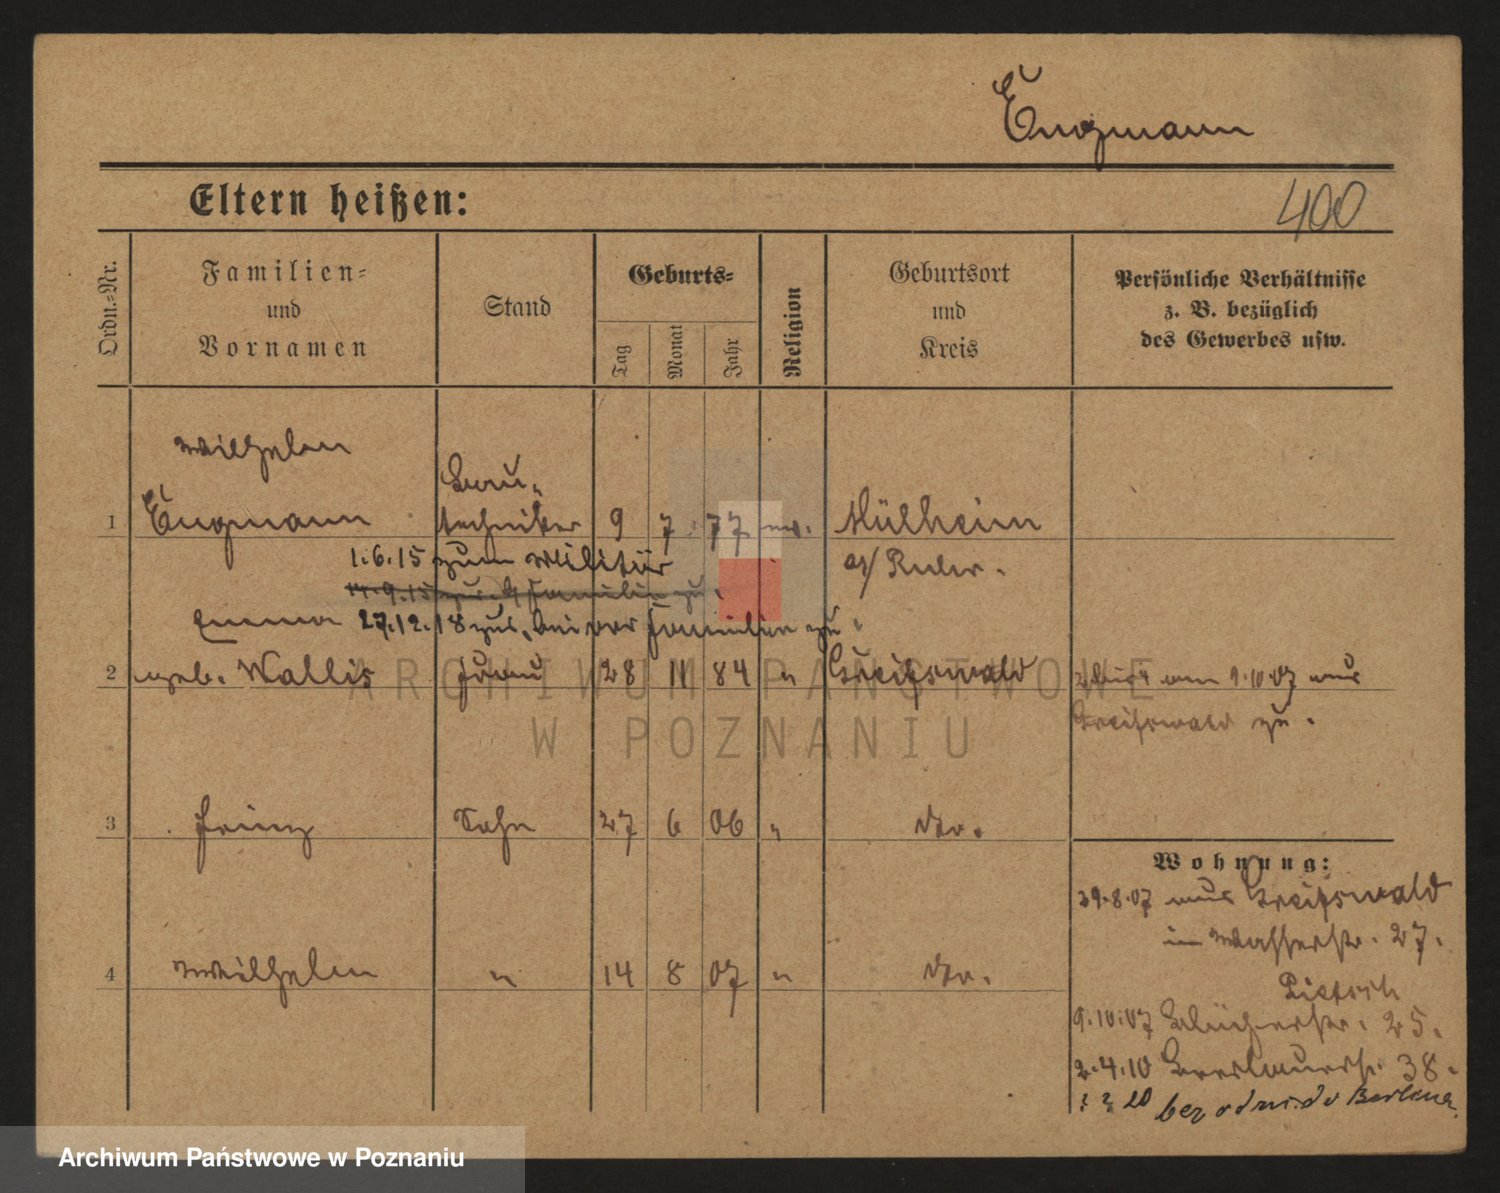 Engmann
Eltern heißen:
400
Ordn.-Nr.
Familien-
und
Vornamen
Stand
Geburts-
Tag
Monat
Jahr
Religion
Geburtsort
und
Kreis
Persönliche Verhältnisse
z. B. bezüglich
des Gewerbes usw.
Wilhelm
Bau-
1 Engmann techniker 9 7. 77 ev. Mülheim
1.6.15 zum Militär a/ Ruhr.
14.9.15 zur Familie zu.
Emma 27.12.18 zur. bei der Familie zu.
2 geb. Wallis Frau 28 11 84 " Greifswald
Frau am 9.10.07 aus
Greifswald zu.
3 Heinz Sohn 27 6 06 " do.
4 Wilhelm " 14 8 07 " do.
Wohnung:
29.8.07 aus Greifswald
in Wasserstr. 27.
Pietsch
9.10.07 Blücherstr. 25.
2.4.10 Breslauerstr. 38.
20 bez odm. do Berlina.
ARCHIWUM PAŃSTWOWE
W POZNANIU
Archiwum Państwowe w Poznaniu